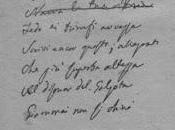 la tua
Fede ai trionfi avvezza
Scrivi ancor questo, allegrati
Che più superba altezza
Al disonor del Golgota
Giammai non si chinò